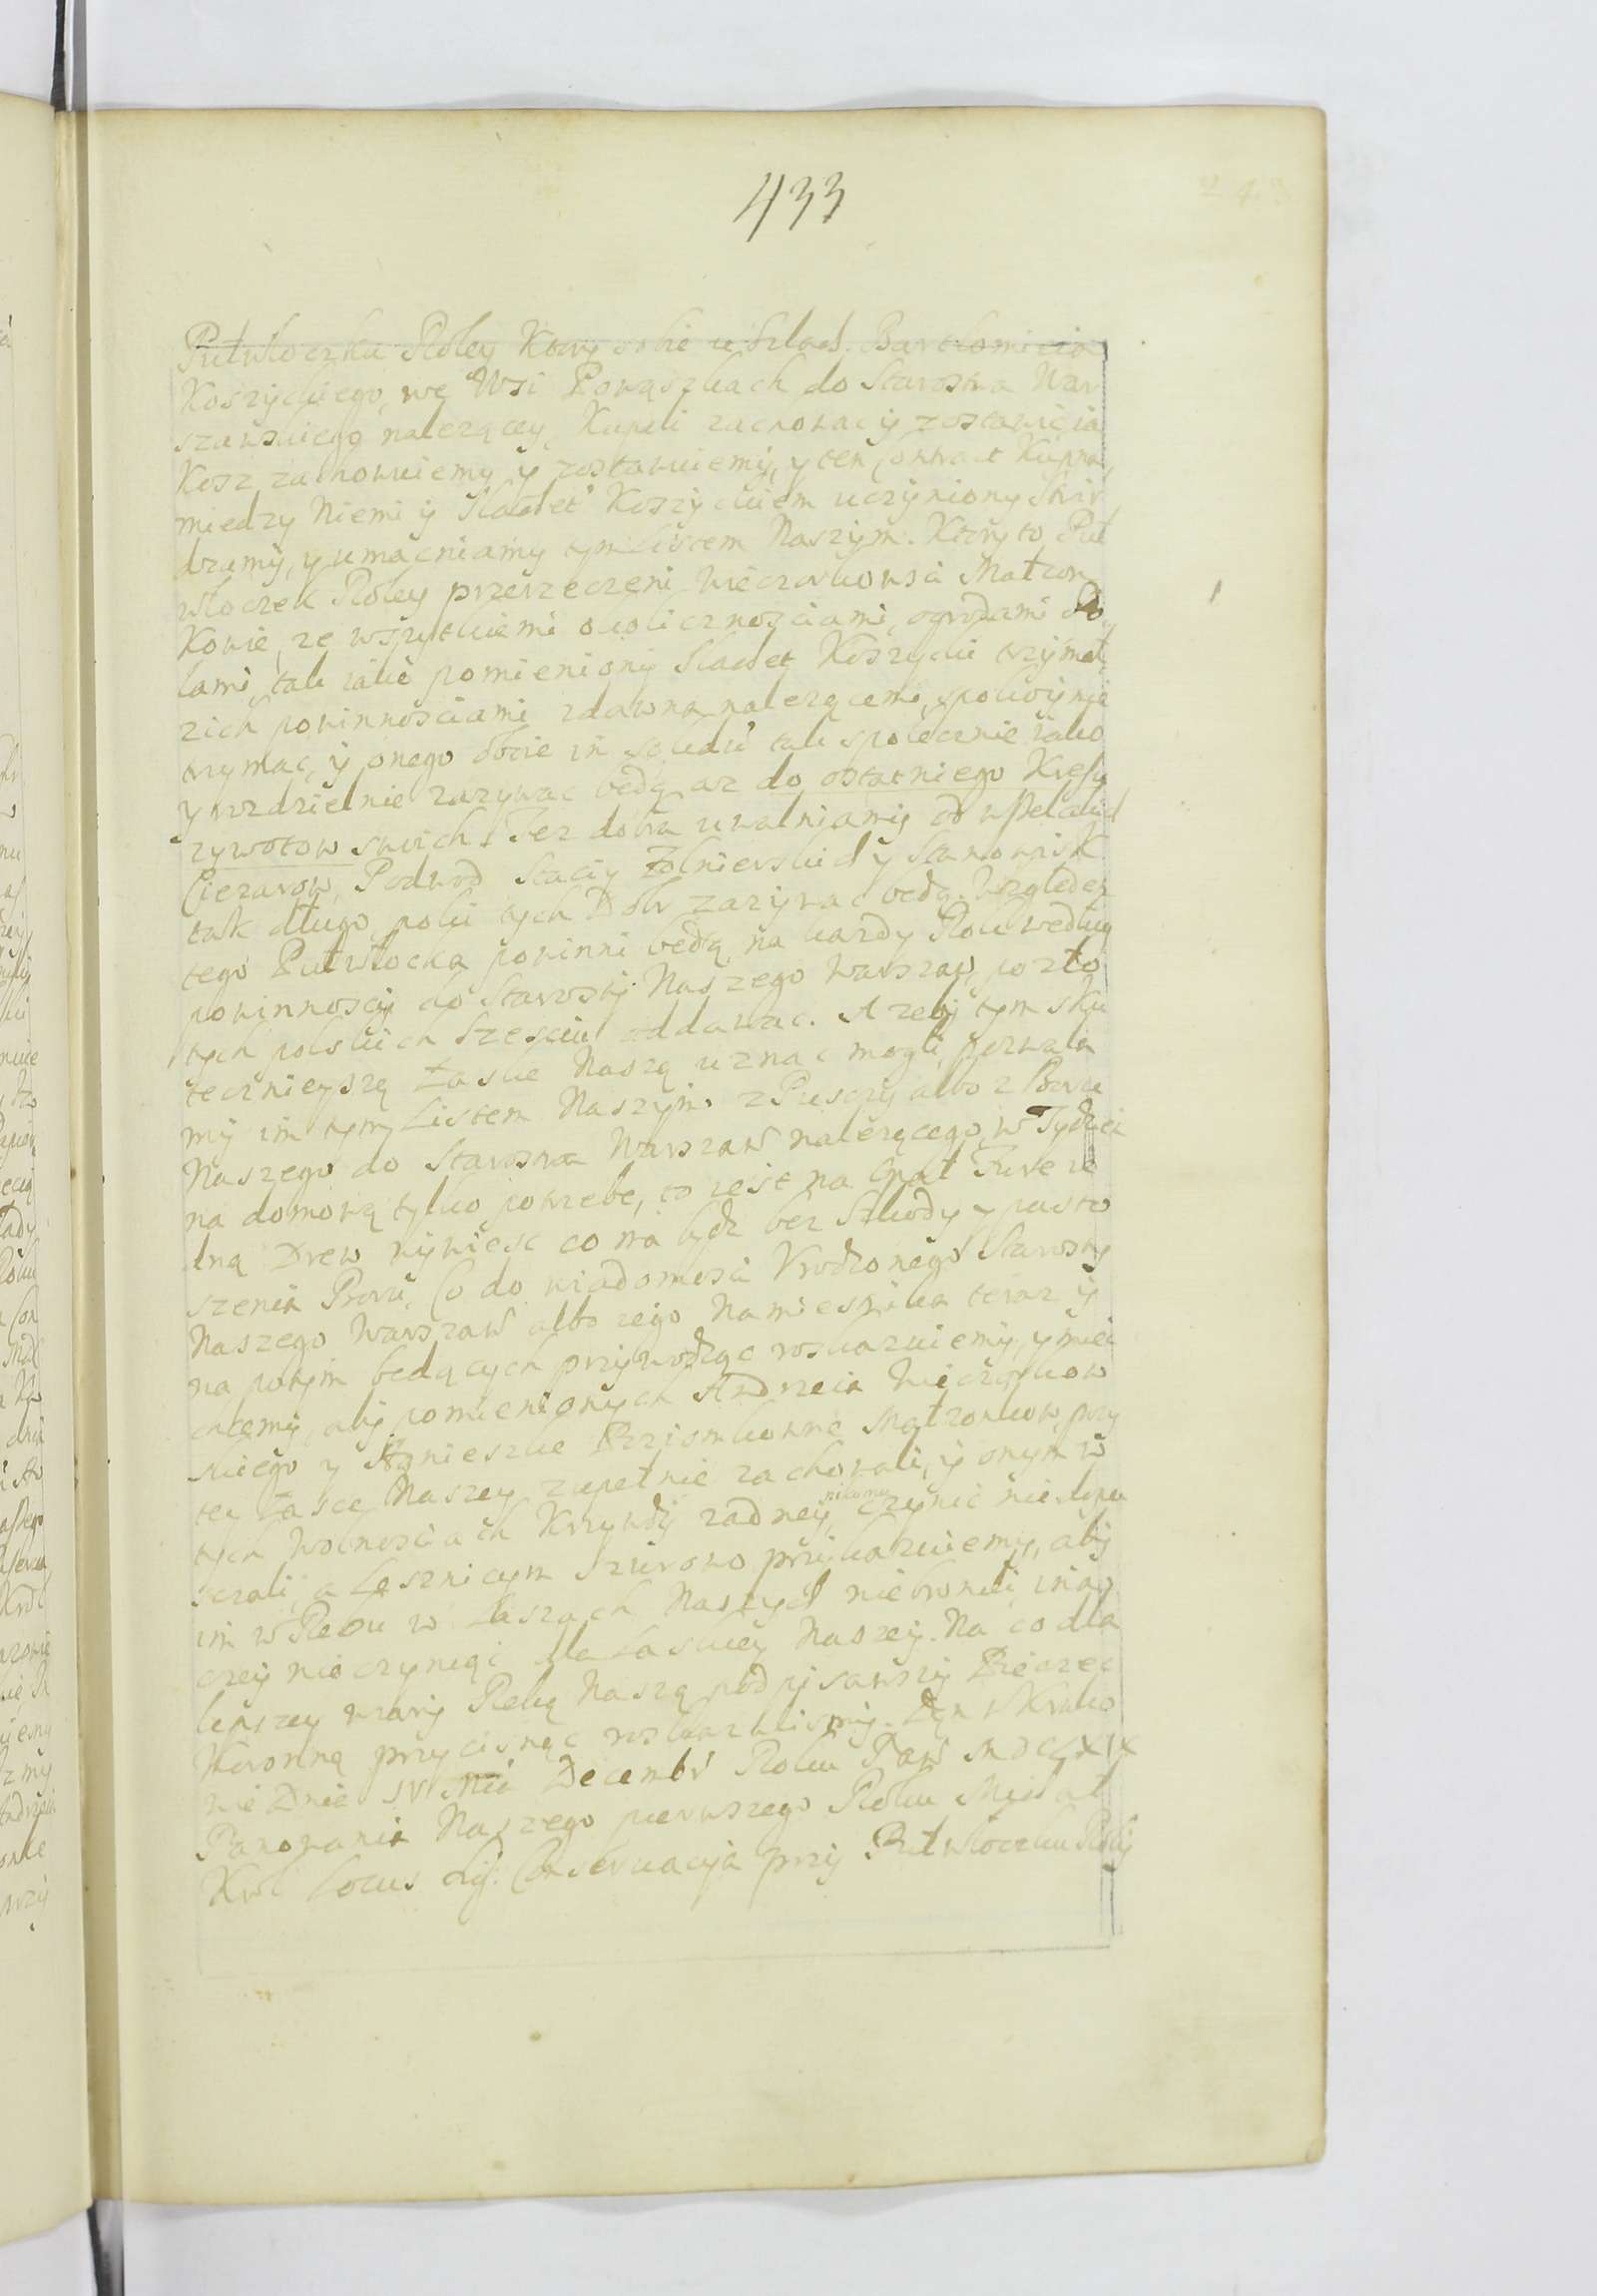 433
243
Pułwłoczku Roley Ktory sobie u Szlach. Bartłomieia
Koszyckiego, we Wsi Powąszkach do Starostwa War
szawskiego należącey, Kupili zachowac y zostawic ia
Kosz zachowuiemy y zostawuiemy, y ten Contract Kupna,
miedzy Niemi y Slachet Koszyckiem uczyniony stwir
dzamy, y umacniamy tym Listem Naszym. Ktory to Puł
włoczek Roley przerzeczeni Wieczorkowsci Małzon
Kowie, ze wszytkiemi okolicznosciami, ogrodami Ro
lami, tak iako pomieniony Slachet Koszycki trzymał,
zich powinnosciami zdawna należącemi, spokoynie
trzymac, y onego oboie in solidu tak społecznie iako
y rozdzielnie zazywac bedą az do ostatniego Kresu
zywotow swoich. Tez dobra uwalniamy od wszelakich
Cięzarow, Podwod Stacyi Żołnierskich y Stanowisk
tak długo poki tych Dobr zazywac bedą. Względem
tego Pułwłocka powinni bedą na kazdy Rok według
powinnosci do Starosty Naszego Warszaw. po zło
tych polskich szesciu oddawac. A zeby tym sku
tecznieyszą Łaske Naszą uznac mogli, pozwala
my im tym Listem Naszym z Pusczy albo z Boru
Naszego do Starostwa Warszaw należącego, w Tydzien
na domową tylko potrzebe, to iest na Opał Fure ie
dną Drew wywiesc co ma bydz bez Szkody y pusto
szenia Boru, Co do wiadomosci Urodzonego Starosty
Naszego Warszaw albo iego Namiesnika teraz y
na potym bedących przywodząc roskazuiemy, y miec
chcemy, aby pomienionych Andrzeia Wieczorkow
skiego y Agnieszke Brzomkowne Małzonkow, przy
tey Łasce Naszey zupełnie zachowali, y onym w
tych wolnosciach Krzywdy zadney nikomu czynic nie dopu
sczali, a Lesniczym surowo przykazuiemy, aby
im wrębu w Lasach Naszych niebronili, inac
zey nie czyniąc dla Łaski Naszey. Na co dla
lepszey wiary Reką Naszą podpisawszy Pieczęc
Koronną przycisnąc roskazalismy. Dan w Krako
wie Dnia IV Mca Decembr Roku Pans MDCLXIX
Panowania Naszego pierwszego Roku Michał
Krol Locus Sig. Conservacya przy Pułwłoczku Roli